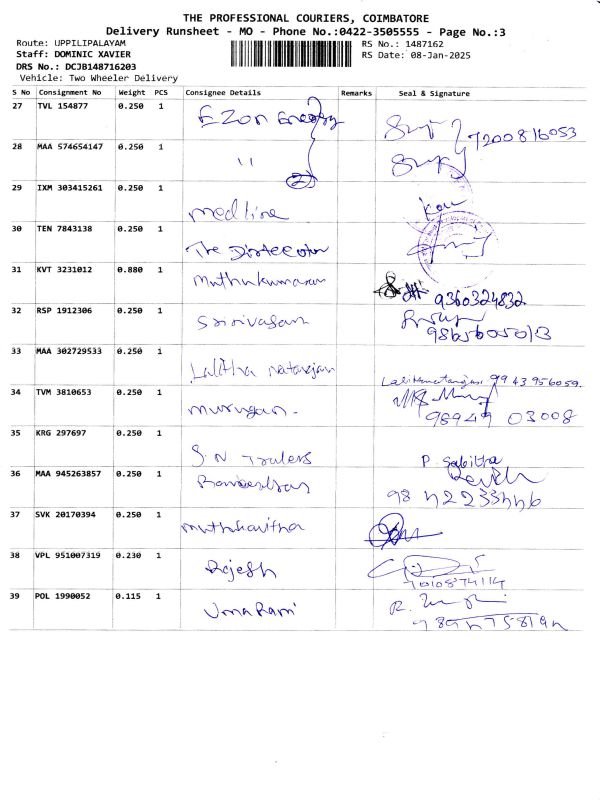 THE PROFESSIONAL COURIERS, COIMBATORE
Delivery Runsheet - MO - Phone No.:0422-3505555 - Page No.:3
Route: UPPILIPALAYAM RS No.: 1487162
Staff: DOMINIC XAVIER RS Date: 08-Jan-2025
DRS No.: DCJB148716203
Vehicle: Two Wheeler Delivery
S No Consignment No Weight PCS Consignee Details Remarks Seal & Signature
27 TVL 154877 0.250 1 EZon Energy 7200816053
28 MAA 574654147 0.250 1 " 2
29 IXM 303415261 0.250 1 medline
30 TEN 7843138 0.250 1 The
31 KVT 3231012 0.880 1 muthukumaran 9360324832
32 RSP 1912306 0.250 1 Srinivasan
33 MAA 302729533 0.250 1 Lalitha natarajan 9943956059
34 TVM 3810653 0.250 1 murugan. 98949 03008
35 KRG 297697 0.250 1 S.N Traders P Sabitha
36 MAA 945263857 0.250 1
37 SVK 20170394 0.250 1 muthukavitha
38 VPL 951007319 0.230 1 Rajesh
39 POL 1990052 0.115 1 Uma Rani